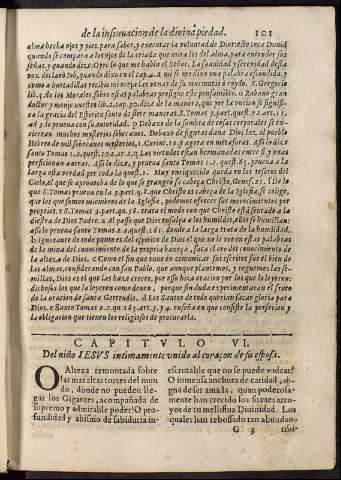 de la insinuacion de la diuina piedad. 101
alma hecha ojos y pies para saber, y executar la voluntad de Dios: esto toca Dauid
quando se compara a los ojos de la criada que mira los del alma, para entender sus
señas, y quando dize: Oyre lo que me habla el Señor. La suauidad y serenidad desta
voz. declarò Iob, quando dixo en el cap. 4. A mi se me dixo vna palabra escondida, y
como a hurtadillas recibio mi oreja las venas de su sumurro ò ruydo. S. Gregorio
lib. 5. de los Morales, sobre estas palabras prosigue este pensamiento. o Rabano gran
doctor y monje nuestro lib. 2. cap. 30. dize de la manera, que por la vncion se signifi-
a la gracia del Espiritu santo de siete maneras. S. Tomas 3. part. quest. 72. art. 1.
ad 3. lo prueua con su autoridad. p Debaxo de la sombra de cosas corporales se en-
cierran muchos mysterios soberanos. Debaxo de figuras daua Dios luz, al pueblo
Hebreo de mil soberanos mysterios, 1. Corint. 10. y agora en metaforas. Assi lo dize
santo Tomas 1. 2. quest. 102. ar. 2. q Las virtudes estan hermanadas entre si y vnas
perficionan a otras. Assi lo dize, y prueua santo Tomas 1. 2. quest. 65. prueua a la
larga esta verdad por toda la quest. r Muy enriquecido queda en los tesoros del
Cielo, al que se ayoundo de lo que se grangeò su cabeça Christo, Genes. 21. De
que S. Tomas prueua en la 3. part. q. 8. que Christo es cabeça de la Iglesia, se colige,
que los que somos miembros de la Iglesia, podemos ofrecer sus merecimientos por
proprios. t S. Tomas 3. part. qu. 58. trata el modo con que Christo està sentado a la
diestra de Dios Padre. a Al passo que Dios ensalça a los humildes, ellos se humillan:
assi lo prueua santo Tomas 2. 2. quest. 161. donde a la larga trata de la humildad.
b Ignorante de todo punto es del espiritu de Dios el que no le vee en estas palabras
de la mina del conocimiento de la propria baxeça, saca el oro del conocimiento de
la alteza de Dios. c Como el fin que tuuo en comunicar sus escritos fue el bien de
las almas, considerando con san Pablo, que aunque plantemos, y reguemos las se-
millas, Dios es el que las haze crecer, por esso hizo oracion por los que le leyeren:
dichosos los que lo leyeren como deuen, porque sin duda experimentaran el fruto
de la oracion de santa Gertrudis. d Los Santos de todo querian sacar gloria para
Dios. e Santo Tomas 2. 2. qu. 183. art. 3. y 4. enseña en que consiste la perfecion y
la obligacion que tienen los religiosos de procurarla.
CAPITVLO VI.
Del niño IESVS intimamente vnido al coraçon de su esposa.
O Alteza remontada sobre
las mas altas torres del mun
do, donde no pueden lle-
gar los Gigantes, acompañada de
supremo y admirable poder! O pro-
fundidad y abismo de sabiduria in-
escrutable que no se puede vadear!
O inmensa anchura de caridad, di-
gna de ser amada, quan poderosa-
mente han crecido los suaues arro-
yos de tu melissua Diuinidad. Los
quales han rebossado tan abundan-
G 3 tissi-